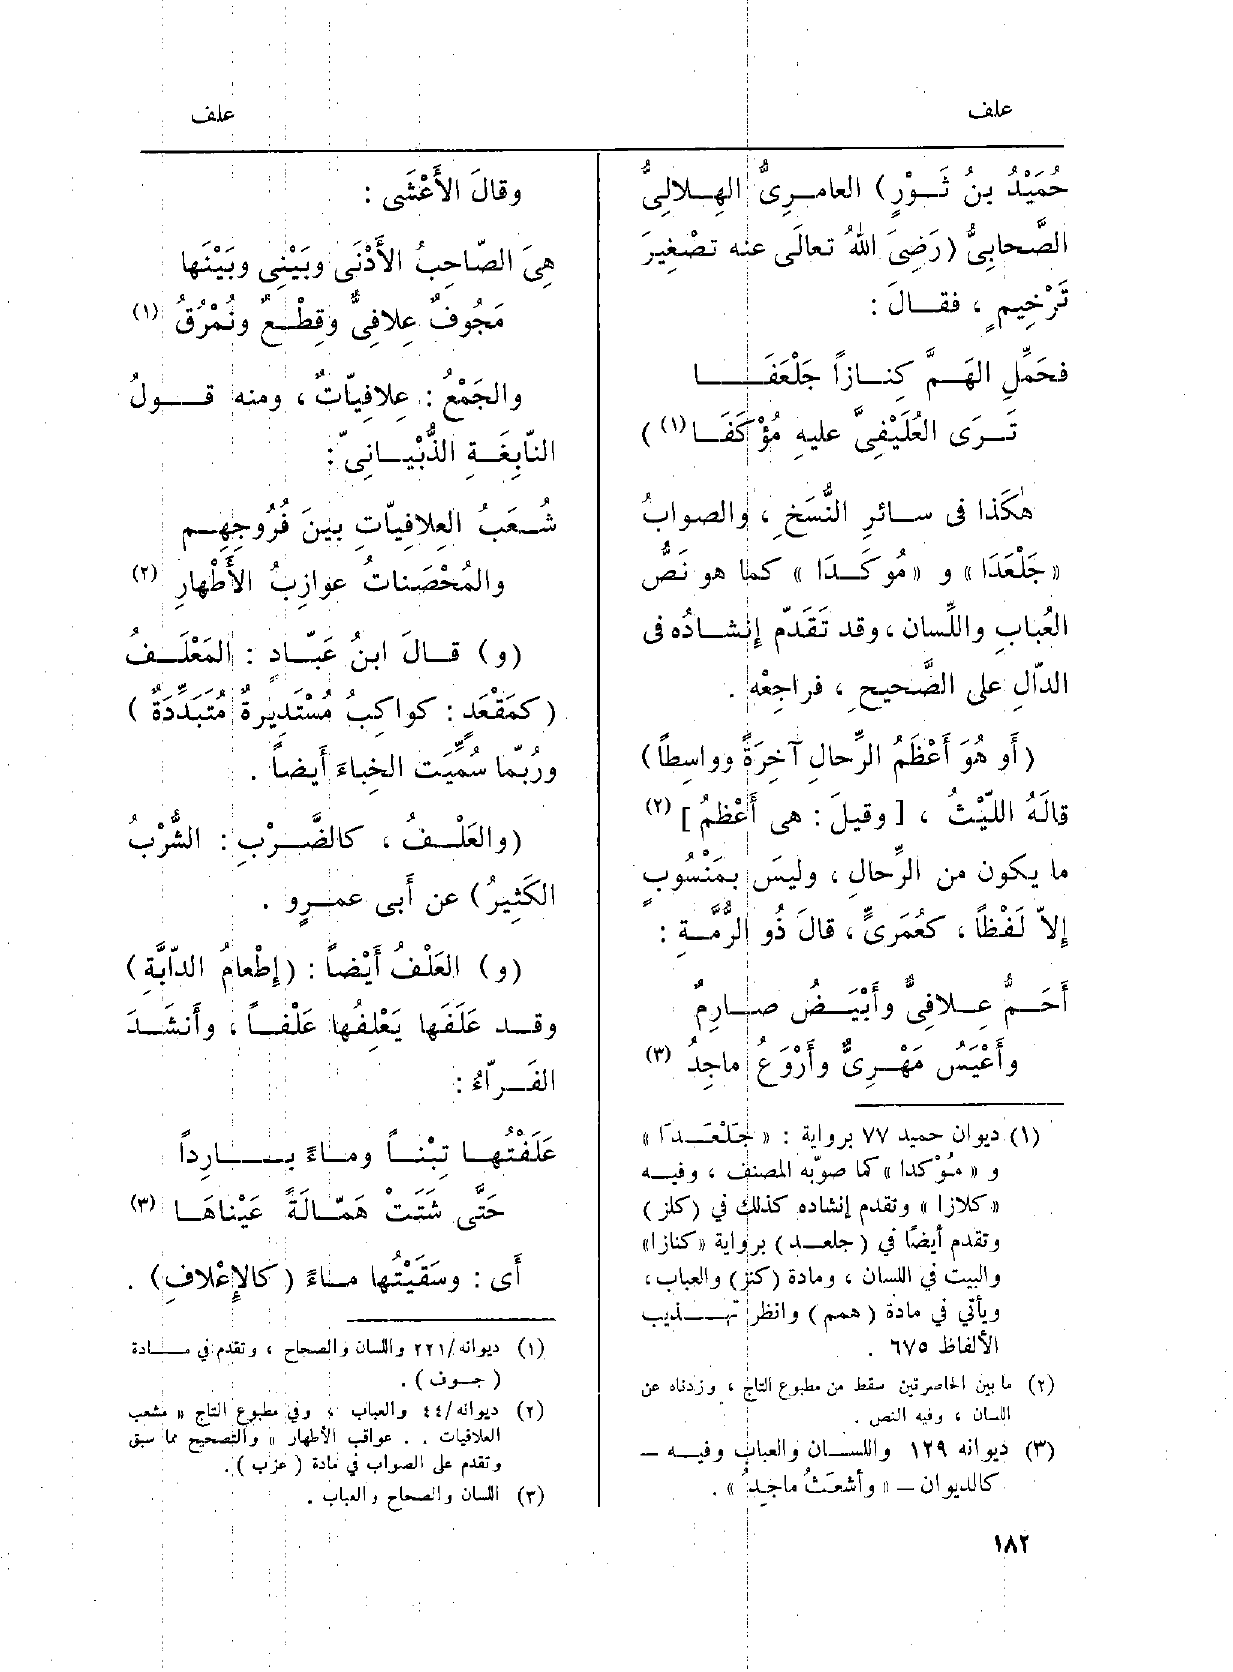 علف
علف
حُمَيْدُ بنُ ثَـوْرٍ) العامـرِىُّ الهِـلالِىُّ
الصَّحابِىُّ (رَضِىَ اللهُ تعالَى عنه تصْغِيرَ
تَرْخِيمٍ ، فقـالَ :
فحَمِّلِ الهَـمَّ كِنـازاً جَلْعَفَـــا
تَـرَى العُلَيْفِىَّ عليهِ مُؤْكَفَـا (١) )
هٰكَذا فى سـائرِ النُّسَخِ ، والصوابُ
«جَلْعَدَا» و «مُوكَـدَا» كما هو نَصُّ
العُبابِ واللِّسان ، وقد تَقَدَّم إنْشـادُه فى
الدّالِ على الصَّحيحِ ، فراجِعْه .
(أو هُوَ أَعْظَمُ الرِّحالِ آخِرَةً وواسِطاً)
قالَهُ اللَّيْثُ ، [ وقيلَ : هى أَعْظمُ ] (٢)
ما يكون من الرِّحالِ ، وليسَ بمَنْسُوبٍ
إلاّ لَفْظاً ، كعُمَرِىٍّ ، قالَ ذُو الرُّمَّـةِ :
أَحَـمُّ عِـلافِىٌّ وأَبْيَـضُ صـارِمٌ
وأَعْيَسُ مَهْـرِىٌّ وأَرْوَعُ ماجِدُ (٣)
(١) ديوان حميد ٧٧ برواية : « جَلْعَـدَا »
و « مُوْكدا » كما صوّبه المصنف ، وفيـه
« كلازا » وتقدم إنشاده كذلك في (كلز)
وتقدم أيضًا في ( جلعـد ) برواية «كنازا»
والبيت في اللسان ، ومادة (كنز) والعباب ،
ويأتي في مادة ( همم ) وانظر تهـــذيب
الألفاظ ٦٧٥ .
(٢) ما بين الحاصرتين سقط من مطبوع التاج ، وزدناه عن
اللسان ، وفيه النص .
(٣) ديوانه ١٢٩ واللسـان والعباب وفيـه –
كالديوان – « وأَشعَثُ ماجِدُ » .
١٨٢
وقالَ الأَعْشَى :
هِىَ الصّاحِبُ الأَدْنَى وبَيْنِى وبَيْنَها
مَجُوفٌ عِلافِىٌّ وقِطْـعٌ ونُمْرُقُ (١)
والجَمْعُ : عِلافِيّاتٌ ، ومنه قـــولُ
النّابِغَـةِ الذُّبْيـانِىّ :
شُـعَبُ العِلافِيّاتِ بينَ فُرُوجِهِـم
والمُحْصَناتُ عوازِبُ الأَطْهارِ (٢)
(و) قـالَ ابنُ عَبّـادٍ : المَعْلَـفُ
(كمَقْعَدٍ : كواكِبُ مُسْتَدِيرةٌ مُتَبَدِّدَةٌ )
ورُبّما سُمِّيَت الخِباءَ أَيضاً .
(والعَلْـفُ ، كالضَّـرْبِ : الشُّرْبُ
الكَثِيرُ) عن أَبى عمـرٍو .
(و) العَلْفُ أَيْضاً : (إطْعامُ الدّابَّةِ)
وقـد عَلَفَها يَعْلِفُها عَلْفـاً ، وأَنشَـدَ
الفَـرّاءُ :
عَلَفْتُهـا تِبْنـاً ومـاءً بـــارِداً
حَتَّى شَتَتْ هَمّـالَةً عَيْناهَـا (٣)
أَى : وسَقَيْتُها مـاءً ( كالإِعْلافِ) .
(١) ديوانه/٢٢١ واللسان والصحاح ، وتقدم في مـــادة
( جـوف ) .
(٢) ديوانه/٤٤ والعباب ، وفي مطبوع التاج « مشعب
العلافيات . . عواقب الأطهار » والتصحيح مما سبق
وتقدم على الصواب في مادة ( عزب ) .
(٣) اللسان والصحاح والعباب .